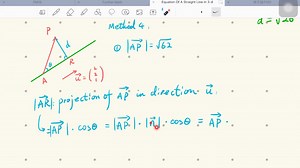 Equation Of A Straight Line in 3-d
Method 4.
d = √26
P
① |AP⃗| = √62
d
θ
A
R
u⃗ = 
|AR|: projection of AP⃗ in direction u⃗.
= |AP⃗| · cosθ = |AP⃗| · |n⃗| · cosθ = AP⃗ ·